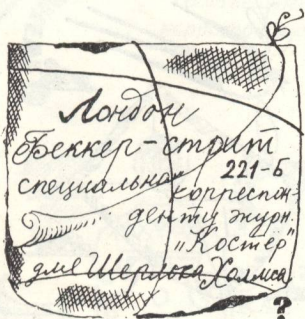 Лондон
Беккер-стрит
221-Б
специально
корреспон-
денту журн.
„Костёр"
для Шерлока Холмса
?